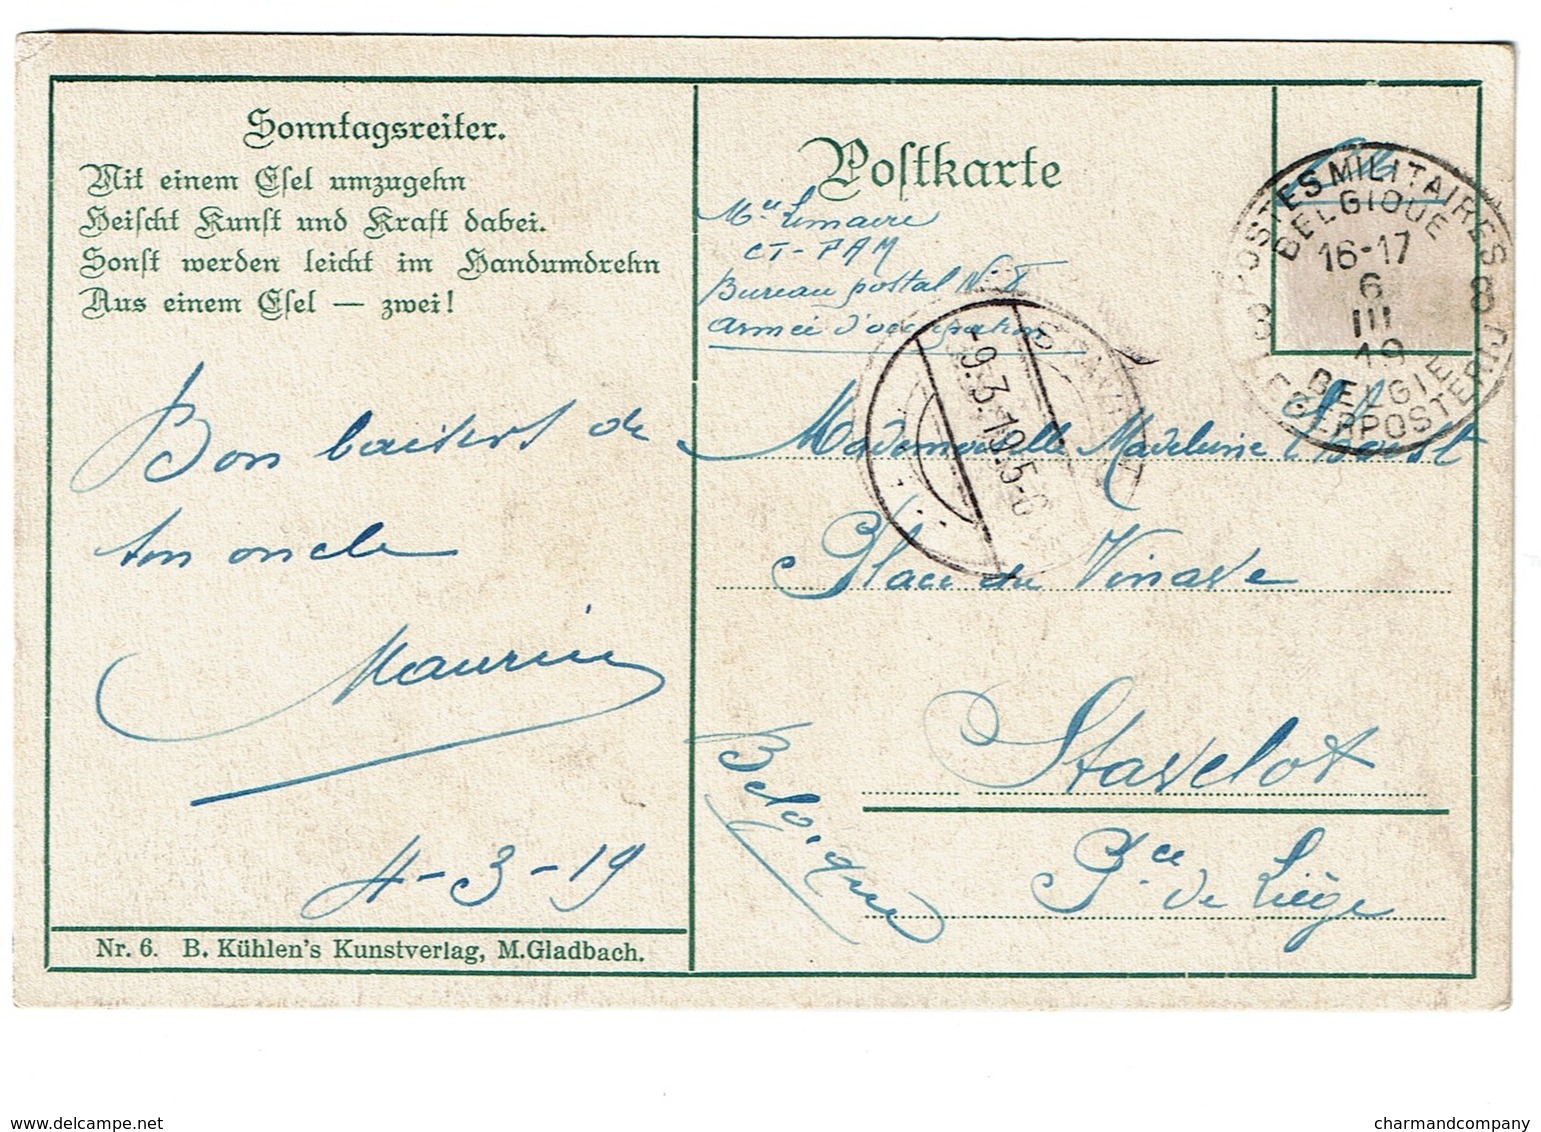 Sonntagsreiter.
Mit einem Esel umzugehn
Heischt Kunst und Kraft dabei.
Sonst werden leicht im Handumdrehn
Aus einem Esel — zwei!
Bon baisers de
ton oncle
Maurice
4-3-19
Nr. 6. B. Kühlen's Kunstverlag, M.Gladbach.
Postkarte
Lemaire
CT-PAM
Bureau postal N°
Armée d'occupation
POSTES MILITAIRES
BELGIQUE
16-17
6
III
19
BELGIE
LEGERPOSTERIJ
8 8
-9.3.19.5-6
Mademoiselle Madeleine
Place du Vinave
Stavelot
Pce de Liège
Belgique
delcampe.net
charmandcompany